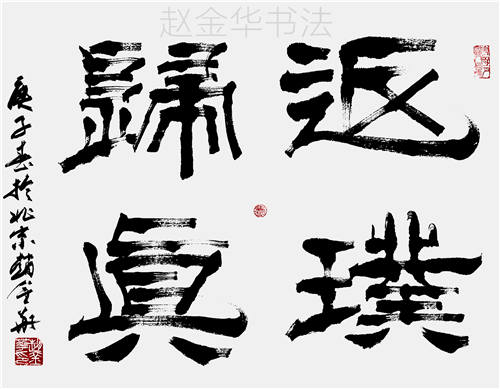 赵金华书法
返璞
歸眞
庚子春於北京趙金華